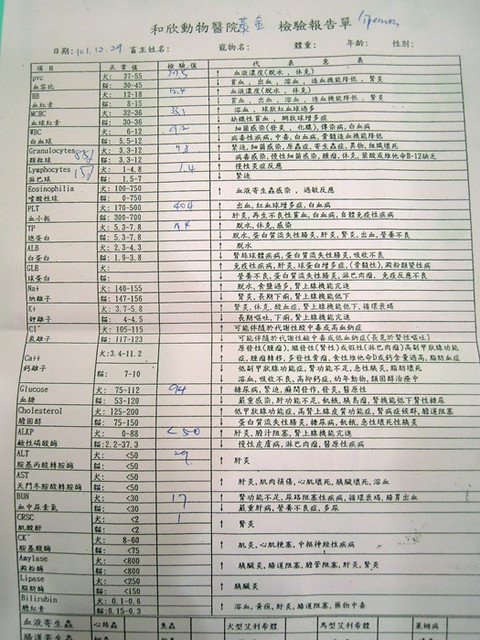 和欣動物醫院 黃金 檢驗報告單
日期:101.12.29 畜主姓名: 寵物名: 體重: 年齡: 性別:
項目 正常值 檢驗值 代表意義
PVC 犬: 37-55 ↑ 血液濃度(脫水,休克)
血容比 貓: 30-45 ↓ 貧血,出血,溶血,造血機能降低,腎炎
HB 犬: 12-18 ↑ 血液濃度(脫水,休克)
血紅素 貓: 8-15 ↓ 貧血,出血,溶血,造血機能降低,腎炎
MCHC 犬: 32-36 ↑ 溶血,球狀紅血球過多
血球紅素 貓: 30-36 ↓ 缺鐵性貧血,網狀球增多症
WBC 犬: 6-12 9.2 ↑ 細菌感染(發炎,化膿),傳染病,白血病
白血球 貓: 5.5-12 ↓ 病毒性疾病,中毒,白血病,骨髓造血機能降低
Granulocytes 犬: 3.3-12 ↑ 緊迫,細菌感染,原蟲感染,寄生蟲病,異物,組織壞死
顆粒球 貓: 3.3-12
Lymphocytes 犬: 1-4.8 1.4 ↑ 慢性炎症反應
淋巴球 貓: 1.5-7 ↓ 緊迫
Eosinophilia 犬: 100-750 ↑ 血液寄生蟲感染,過敏反應
嗜酸性球 貓: 0-750
PLT 犬: 170-500 404 ↑ 出血,紅血球增多症,白血病
血小板 貓: 300-700 ↓ 肝炎,再生不良性貧血,白血病,自體免疫性疾病
TP 犬: 5.3-7.8 ↑ 脫水,休克,感染
總蛋白 貓: 5.3-7.8 ↓ 脫水,蛋白質流失性腸炎,肝炎,腎炎,出血,營養不良
ALB 犬: 2.3-4.3 ↑ 脫水
白蛋白 貓: 1.9-3.8 ↓ 腎絲球體疾病,蛋白質流失性腸炎,吸收不良
GLB 犬: ↑ 免疫性疾病,肝炎,球蛋白增多症,(骨髓性),澱粉樣變性病
球蛋白 貓: ↓ 營養不良,蛋白質流失性腸炎,淋巴肉瘤,免疫反應不良
Na+ 犬: 140-155 ↑ 脫水,食鹽過多,腎上腺機能亢進
鈉離子 貓: 147-156 ↓ 腎炎,長期下痢,腎上腺機能低下
K+ 犬: 3.7-5.8 ↑ 腎炎,休克,酸血症,腎上腺機能低下,循環衰竭
鉀離子 貓: 4-4.5 ↓ 長期嘔吐,下痢,腎上腺機能亢進
Cl- 犬: 105-115 ↑ 可能伴隨於代謝性酸中毒或高血鈉症
氯離子 貓: 117-123 ↓ 可能伴隨於代謝性鹼中毒或低血鈉症(長見於腎性嘔吐)
Ca++ 犬:3.4-11.2 ↑ 原發性(腫瘤),續發性(腎性)或假性(淋巴肉瘤)高副甲狀腺功能症,腫瘤轉移,多發性骨瘤,食性維他命D或鈣含量過高,脂肪血症
鈣離子 貓: 7-10 ↓ 低副甲狀腺功能症,腎功能不足,急性胰炎,脂肪壞死
溶血,吸收不良,高抑鈣症,幼年動物,類固醇治療中
Glucose 犬: 75-112 94 ↑ 糖尿病,緊迫,癲間發作,發炎,醫原性
血糖 貓: 53-120 ↓ 嚴重感染,肝功能不足,飢餓,胰島瘤,腎機能低下腎性糖症
Cholesterol 犬: 125-200 ↑ 低甲狀腺功能症,高腎上腺皮質功能症,腎病症候群,膽道阻塞
膽固醇 貓: 75-150 ↓ 蛋白質流失性腸炎,糖尿病,飢餓,急性壞死性胰炎
ALKP 犬: 0-88 <50 ↑ 肝炎,膽汁阻塞,腎上腺機能亢進
鹼性磷酸酶 貓:2.2-37.3 ↓ 慢性皮膚病,淋巴肉瘤,醫原性疾病
ALT 犬: <50 29 ↑ 肝炎
胺基丙酸轉胺酶 貓: <50
AST 犬: <50 ↑ 肝炎,肌肉損傷,心肌壞死,胰臟壞死,溶血
天門冬胺酸轉胺酶 貓: <50
BUN 犬: <30 17 ↑ 腎功能不足,尿路阻塞性疾病,循環衰竭,腸胃出血
血中尿素氮 貓: <30 ↓ 嚴重肝病,營養不良症,多尿
CRSC 犬: <2 1 ↑ 腎炎
肌酸酐 貓: <2
CK 犬: 8-60 ↑ 肌炎,心肌梗塞,中樞神經性疾病
胺基酸酶 貓: <75
Amylase 犬: <800 ↑ 胰臟炎,腸道阻塞,膽管阻塞,肝炎,腎炎
澱粉酶 貓: <800
Lipase 犬: <250 ↑ 胰臟炎
脂肪酶 貓: <150
Bilirubin 犬: 0.1-0.6 ↑ 溶血,黃疸,肝炎,腸道阻塞,藥物中毒
膽紅素 貓:0.15-0.3
血液寄生蟲 心絲蟲 焦蟲 犬型艾利希體 馬型艾利希體 萊姆病
腸道寄生蟲